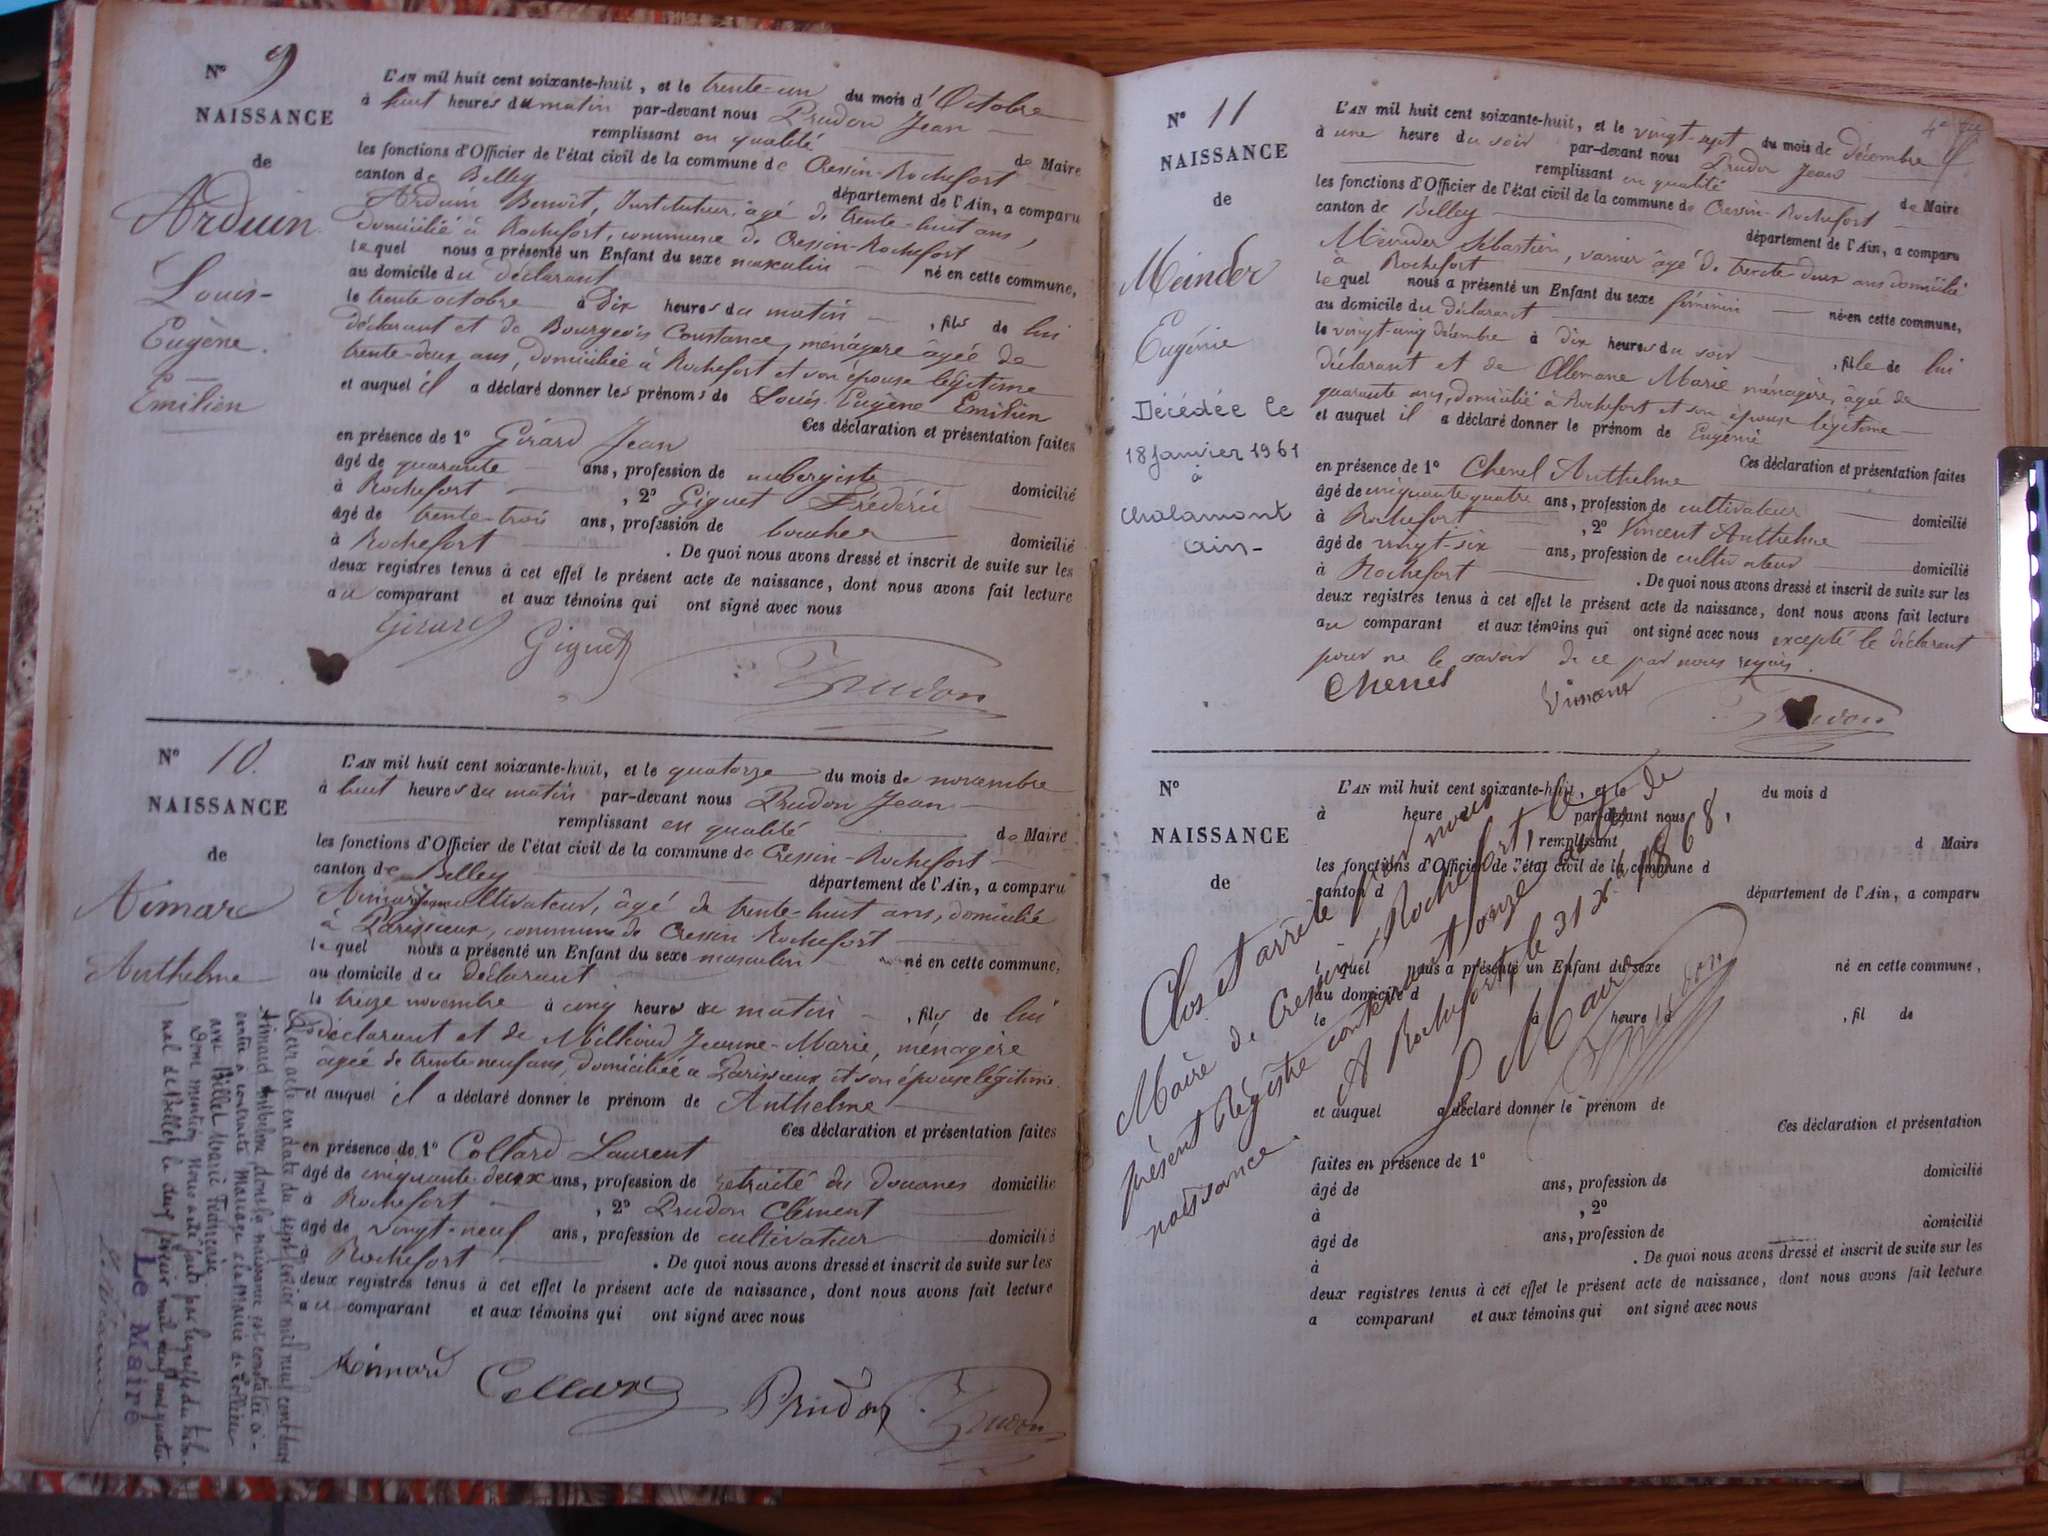 N° 9
NAISSANCE
de
Arduin
Louis-
Eugène.
Emilien
L'AN mil huit cent soixante-huit, et le trente-un du mois d'Octobre
à huit heures du matin par-devant nous Prudon Jean
remplissant en qualité de Maire
les fonctions d'Officier de l'état civil de la commune de Cressin-Rochefort
canton de Belley département de l'Ain, a comparu
Arduin Benoît, Instituteur, âgé de trente-huit ans,
domicilié à Rochefort, commune de Cressin-Rochefort
lequel nous a présenté un Enfant du sexe masculin né en cette commune,
au domicile du déclarant
le trente octobre à dix heures du matin, fils de lui
déclarant et de Bourgeois Constance, ménagère âgée de
trente-deux ans, domiciliée à Rochefort et son épouse légitime
et auquel il a déclaré donner les prénoms de Louis Eugène Emilien
Ces déclaration et présentation faites
en présence de 1° Girard Jean
âgé de quarante ans, profession de aubergiste domicilié
à Rochefort, 2° Giguet Frédéric
âgé de trente-trois ans, profession de boucher domicilié
à Rochefort. De quoi nous avons dressé et inscrit de suite sur les
deux registres tenus à cet effet le présent acte de naissance, dont nous avons fait lecture
au comparant et aux témoins qui ont signé avec nous
Girard Giguet Prudon
N° 10.
NAISSANCE
de
Aimard
Anthelme
L'AN mil huit cent soixante-huit, et le quatorze du mois de novembre
à huit heures du matin par-devant nous Prudon Jean
remplissant en qualité de Maire
les fonctions d'Officier de l'état civil de la commune de Cressin-Rochefort
canton de Belley département de l'Ain, a comparu
Aimard cultivateur, âgé de trente-huit ans, domicilié
à Parissieux, commune de Cressin-Rochefort
lequel nous a présenté un Enfant du sexe masculin né en cette commune,
au domicile du déclarant
le treize novembre à cinq heures du matin, fils de lui
déclarant et de Millioud Jeanne-Marie, ménagère
âgée de trente neuf ans, domiciliée à Parissieux et son épouse légitime.
et auquel il a déclaré donner le prénom de Anthelme
Ces déclaration et présentation faites
en présence de 1° Collard Laurent
âgé de cinquante deux ans, profession de retraité des douanes domicilié
à Rochefort, 2° Prudon Clément
âgé de vingt-neuf ans, profession de cultivateur domicilié
à Rochefort. De quoi nous avons dressé et inscrit de suite sur les
deux registres tenus à cet effet le présent acte de naissance, dont nous avons fait lecture
au comparant et aux témoins qui ont signé avec nous
Aimard Collard Prudon Prudon
Par acte en date du sept février mil neuf cent
Aimard Anthelme dont la naissance est constatée ci-
contre a contracté Mariage à la Mairie de
avec Billet Marie
Dont mention nous a été faite par le greffe du tribu-
nal de Belley le
Le Maire
N° 11
NAISSANCE
de
Meinder
Eugénie
Décédée le
18 Janvier 1961
à
Chalamont
Ain-
L'AN mil huit cent soixante-huit, et le vingt-sept du mois de décembre
à une heure du soir par-devant nous Prudon Jean
remplissant en qualité de Maire
les fonctions d'Officier de l'état civil de la commune de Cressin-Rochefort
canton de Belley département de l'Ain, a comparu
Meinder Sébastien, vannier âgé de trente-deux ans domicilié
à Rochefort
lequel nous a présenté un Enfant du sexe féminin né en cette commune,
au domicile du déclarant
le vingt-cinq décembre à dix heures du soir, fille de lui
déclarant et de Ollemane Marie ménagère, âgée de
quarante ans, domicilié à Rochefort et son épouse légitime
et auquel il a déclaré donner le prénom de Eugénie
Ces déclaration et présentation faites
en présence de 1° Chenel Anthelme
âgé de cinquante quatre ans, profession de cultivateur domicilié
à Rochefort, 2° Vincent Anthelme
âgé de vingt-six ans, profession de cultivateur domicilié
à Rochefort. De quoi nous avons dressé et inscrit de suite sur les
deux registres tenus à cet effet le présent acte de naissance, dont nous avons fait lecture
au comparant et aux témoins qui ont signé avec nous excepté le déclarant
pour ne le savoir de ce par nous requis.
Chenel Vincent Prudon
N°
NAISSANCE
de
L'AN mil huit cent soixante-huit, et le du mois d
à heure d par-devant nous
remplissant d Maire
les fonctions d'Officier de l'état civil de la commune d
canton d département de l'Ain, a comparu
lequel nous a présenté un Enfant du sexe né en cette commune,
au domicile d
le à heure d, fil de
et auquel a déclaré donner le prénom de
Ces déclaration et présentation
faites en présence de 1°
âgé de ans, profession de domicilié
à, 2°
âgé de ans, profession de domicilié
à. De quoi nous avons dressé et inscrit de suite sur les
deux registres tenus à cet effet le présent acte de naissance, dont nous avons fait lecture
a comparant et aux témoins qui ont signé avec nous
Clos et arrêté par nous
Maire de Cressin-Rochefort, le
présent Régistre contenant onze actes de
naissance.
A Rochefort, le 31 Xbre 1868.
Le Maire
Prudon